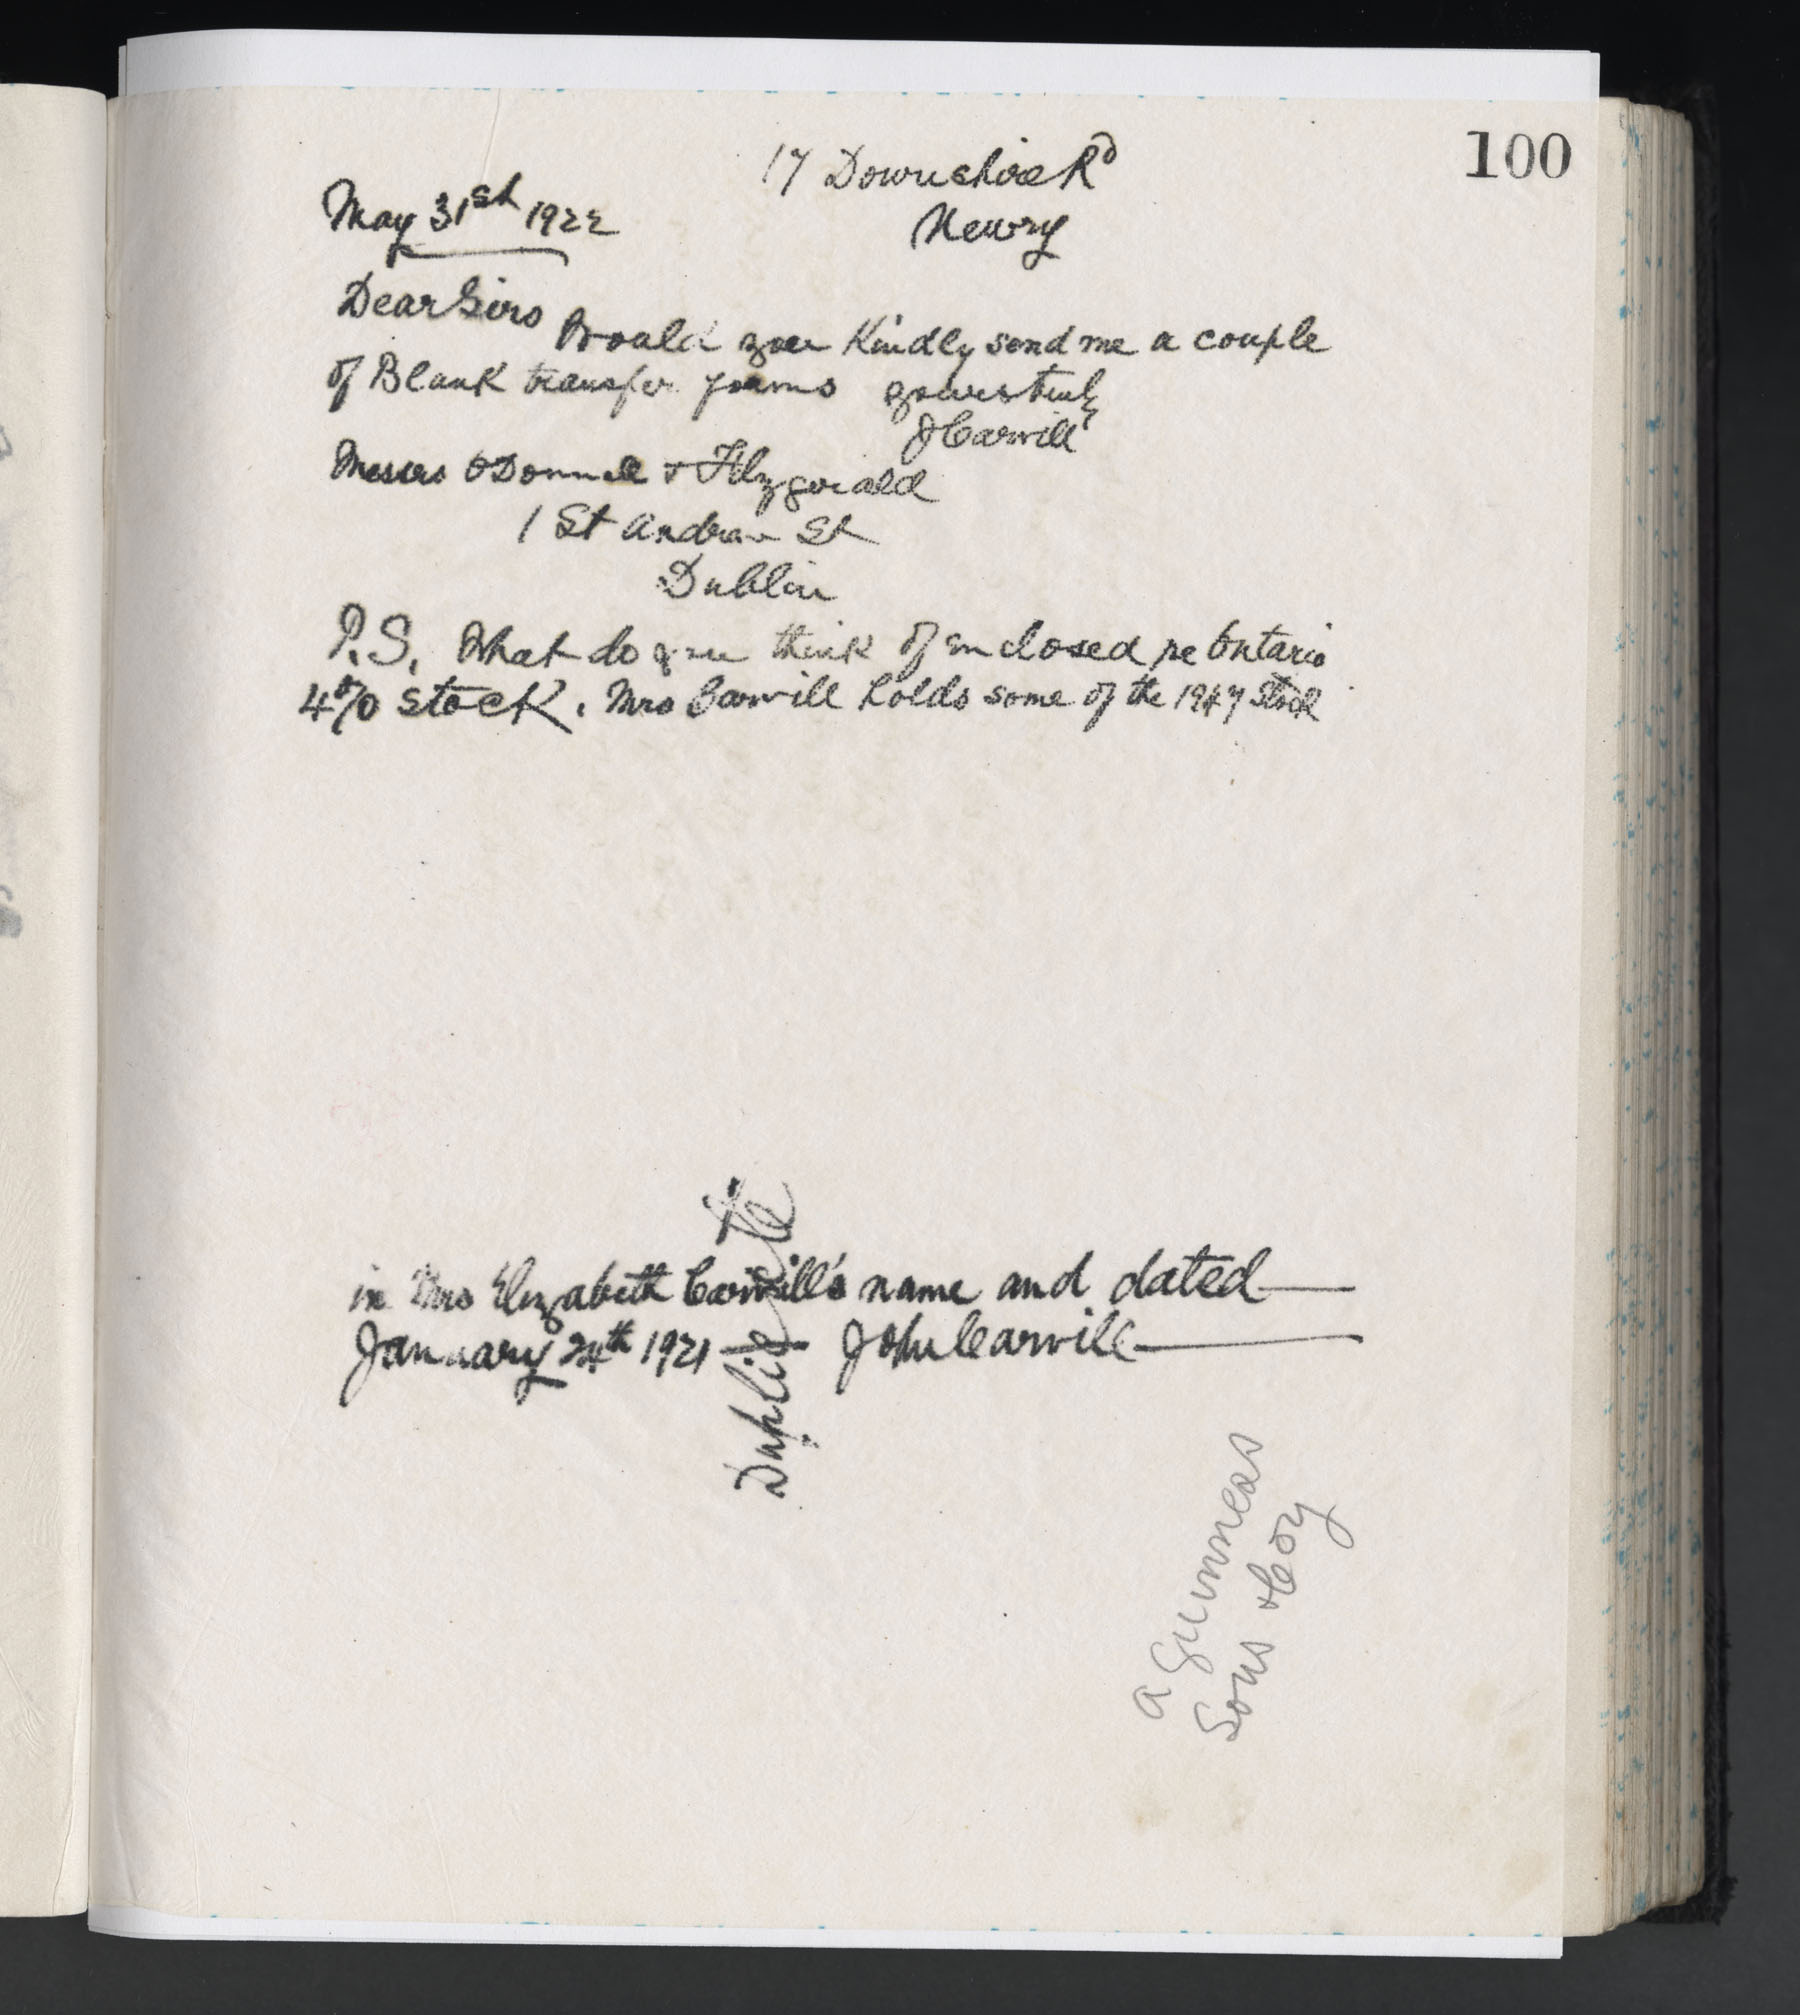 100
17 Downshire Rd
May 31st 1922
Newry
Dear Sirs
Would you Kindly send me a couple
of Blank transfer forms yours truly
J Carvill
Messrs O'Donnell & Fitzgerald
1 St Andrew St
Dublin
P.S. What do you think of enclosed re Ontario
4% stock. Mrs Carvill holds some of the 1947 Stock
in Mrs Elizabeth Carvill's name and dated
January 24th 1921 John Carvill
Duplicate
A Guinness
Sons & Coy